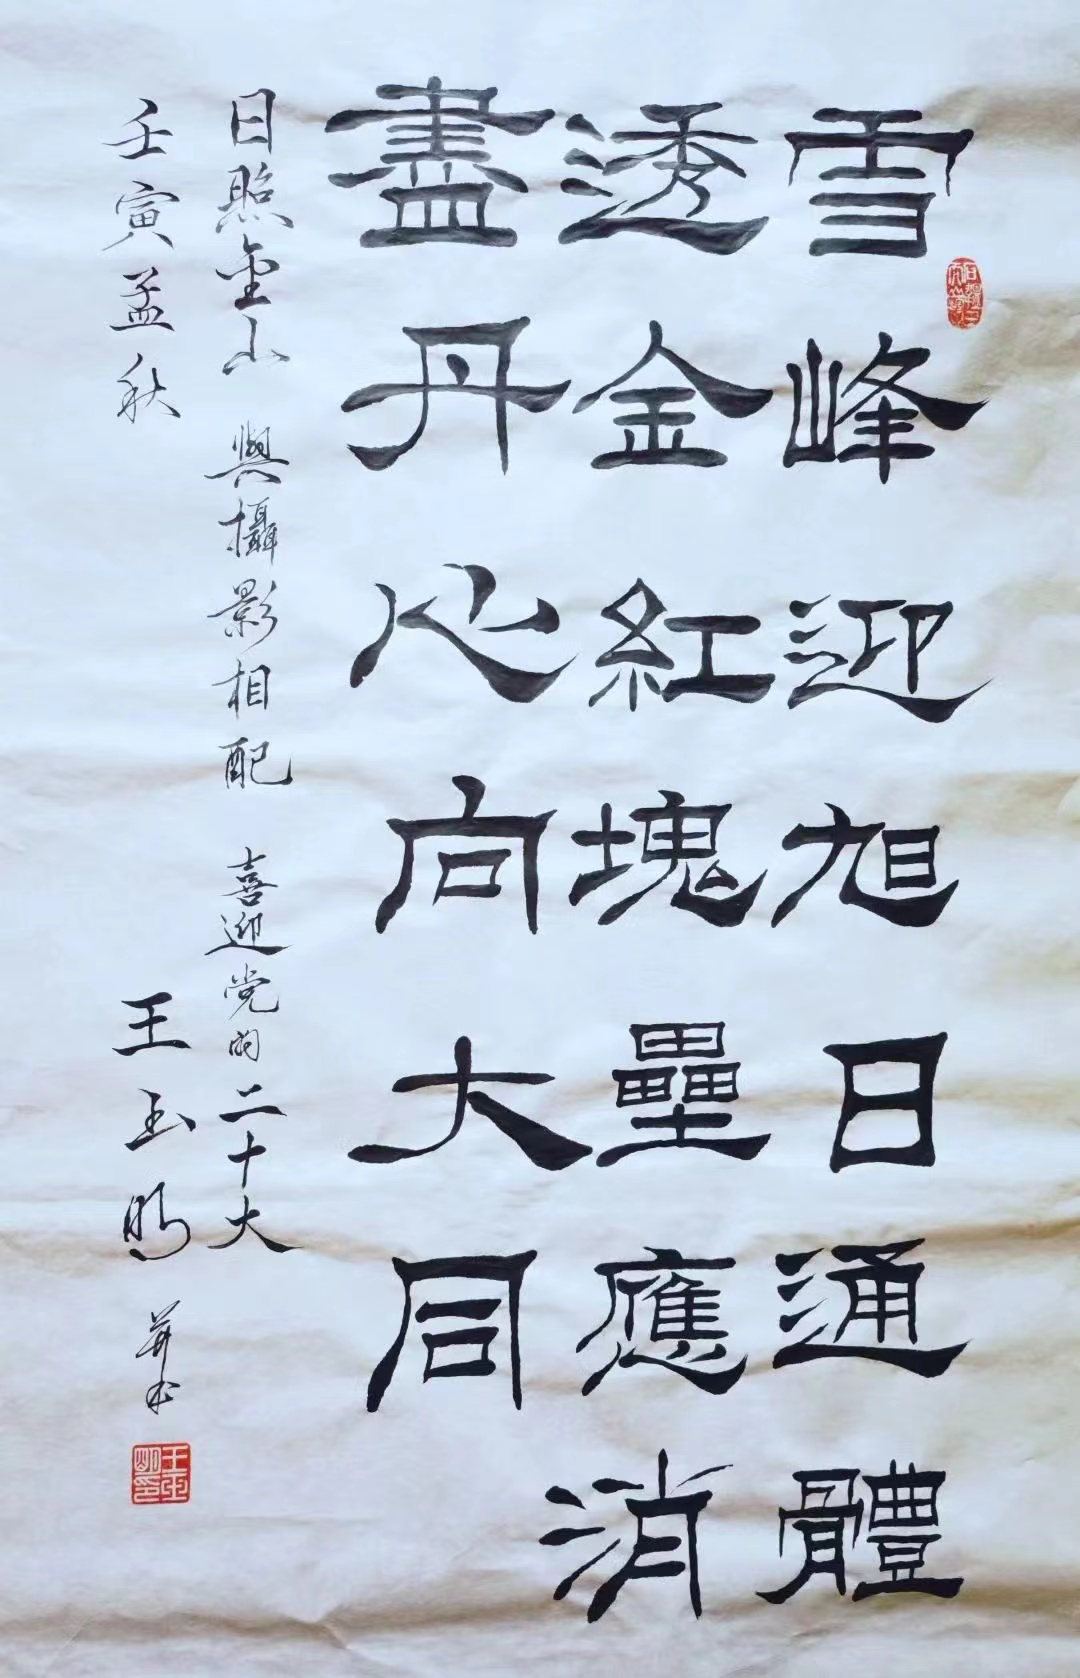 雪峰迎旭日通體
透金紅塊壘應消
盡丹心向大同
日照金山 與攝影相配 喜迎党的二十大
壬寅孟秋 王玉明 并书
王玉明印